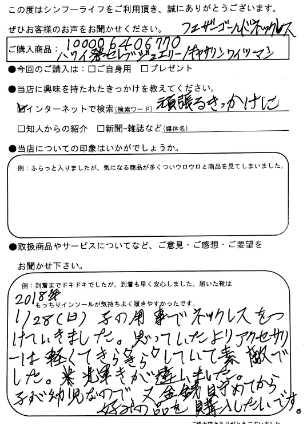 この度はシンフーライフをご利用頂き、誠にありがとうございます。
ぜひお客様のお声をお聞かせください。
フェザーゴールドネックレス
ご購入商品: 100006406770
ハワイ発セレブジュエリー/キャサリンワイツマン
●今回のご購入は：□ご自身用 □プレゼント
●当店に興味を持たれたきっかけを教えてください。
☑インターネットで検索(検索ワード) 頑張るきっかけに
□知人からの紹介 □新聞・雑誌など(媒体名)
●当店についての印象はいかがでしょうか。
例：ふらっと入りましたが、気になる商品が多くついウロウロと商品を見てしまいました。
●取扱商品やサービスについてなど、ご意見・ご感想・ご要望を
お聞かせ下さい。
例：到着までドキドキでしたが、到着も早く安心しました。届いた靴は
もっちりインソールが気持ちよく履きやすかったです。
2018年
1/28(日) 子の用事でネックレスをつ
けていきました。思っていたよりアクセサリ
ーは軽くてきらきらしていて素敵で
した。光輝きが違いました。
子が幼児なので又金銭貯めてから
好みの品を購入したいです。